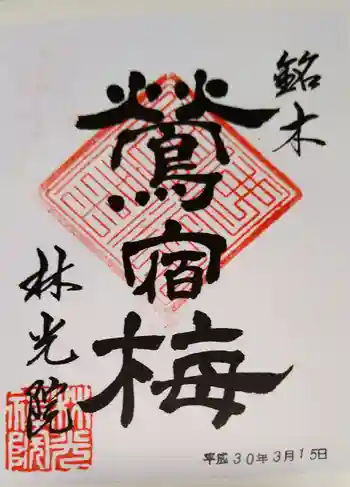 銘木
鶯宿梅
林光院
平成30年3月15日